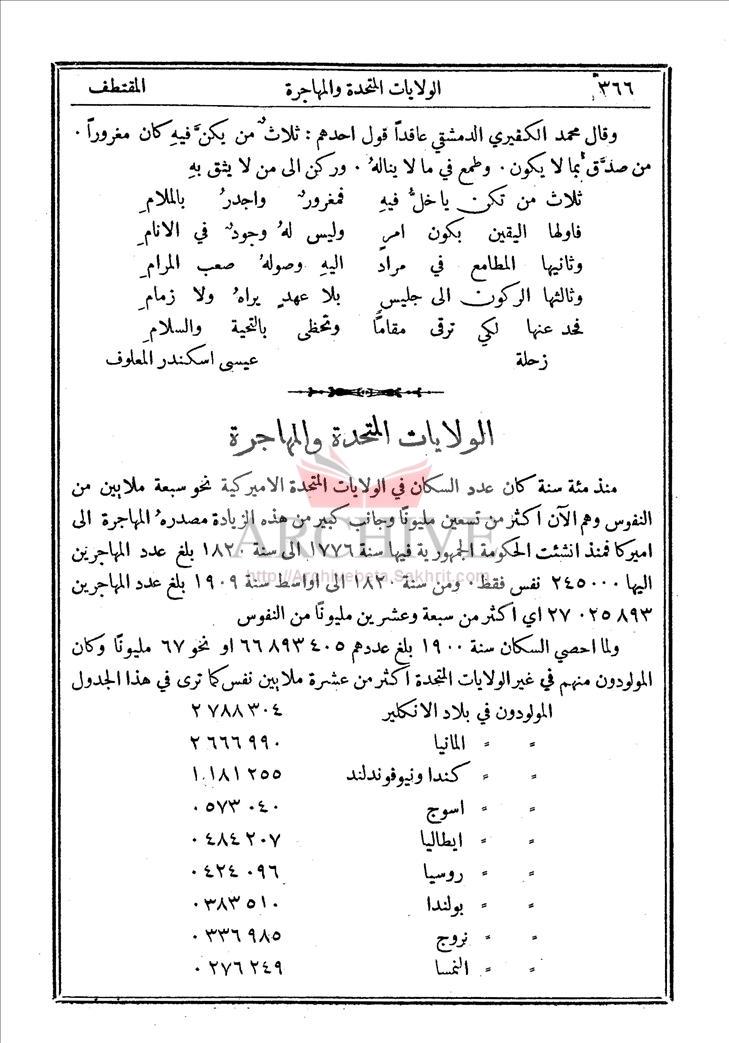 ٣٦٦ الولايات المتحدة والمهاجرة المقتطف
وقال محمد الكفيري الدمشقي عاقداً قول احدهم : ثلاثٌ من يكنَّ فيهِ كان مغروراً .
من صدَّق بما لا يكون . وطمع في ما لا ينالهُ . وركن الى من لا يثق بهِ
ثلاث من تكن ياخلُّ فيهِ فمغرورٌ واجدرُ بالملامِ
فاولها اليقين بكون امرٍ وليس لهُ وجودٌ في الانامِ
وثانيها المطامع في مرادٍ اليهِ وصولهُ صعب المرامِ
وثالثها الركون الى جليسٍ بلا عهدٍ يراهُ ولا زمامِ
فحد عنها لكي ترقى مقامًا وتحظى بالتحية والسلامِ
زحلة عيسى اسكندر المعلوف
الولايات المتحدة والمهاجرة
منذ مئة سنة كان عدد السكان في الولايات المتحدة الاميركية نحو سبعة ملايين من
النفوس وهم الآن اكثر من تسعين مليونًا وجانب كبير من هذه الزيادة مصدرهُ المهاجرة الى
اميركا فمنذ انشئت الحكومة الجمهورية فيها سنة ١٧٧٦ الى سنة ١٨٢٠ بلغ عدد المهاجرين
اليها ٢٤٥٠٠٠ نفس فقط . ومن سنة ١٨٢٠ الى اواسط سنة ١٩٠٩ بلغ عدد المهاجرين
٢٧٠٢٥٨٩٣ اي اكثر من سبعة وعشرين مليونًا من النفوس
ولما احصي السكان سنة ١٩٠٠ بلغ عددهم ٦٦٨٩٣٤٠٥ او نحو ٦٧ مليونًا وكان
المولودون منهم في غير الولايات المتحدة اكثر من عشرة ملايين نفس كما ترى في هذا الجدول
المولودون في بلاد الانكليز ٢٧٨٨٣٠٤
" " المانيا ٢٦٦٦٩٩٠
" " كندا ونيوفوندلند ١١٨١٢٥٥
" " اسوج ٠٥٧٣٠٤٠
" " ايطاليا ٠٤٨٤٢٠٧
" " روسيا ٠٤٢٤٠٩٦
" " بولندا ٠٣٨٣٥١٠
" " نروج ٠٣٣٦٩٨٥
" " النمسا ٠٢٧٦٢٤٩
ARCHIVE
http://Archivebeta.Sakhrit.com